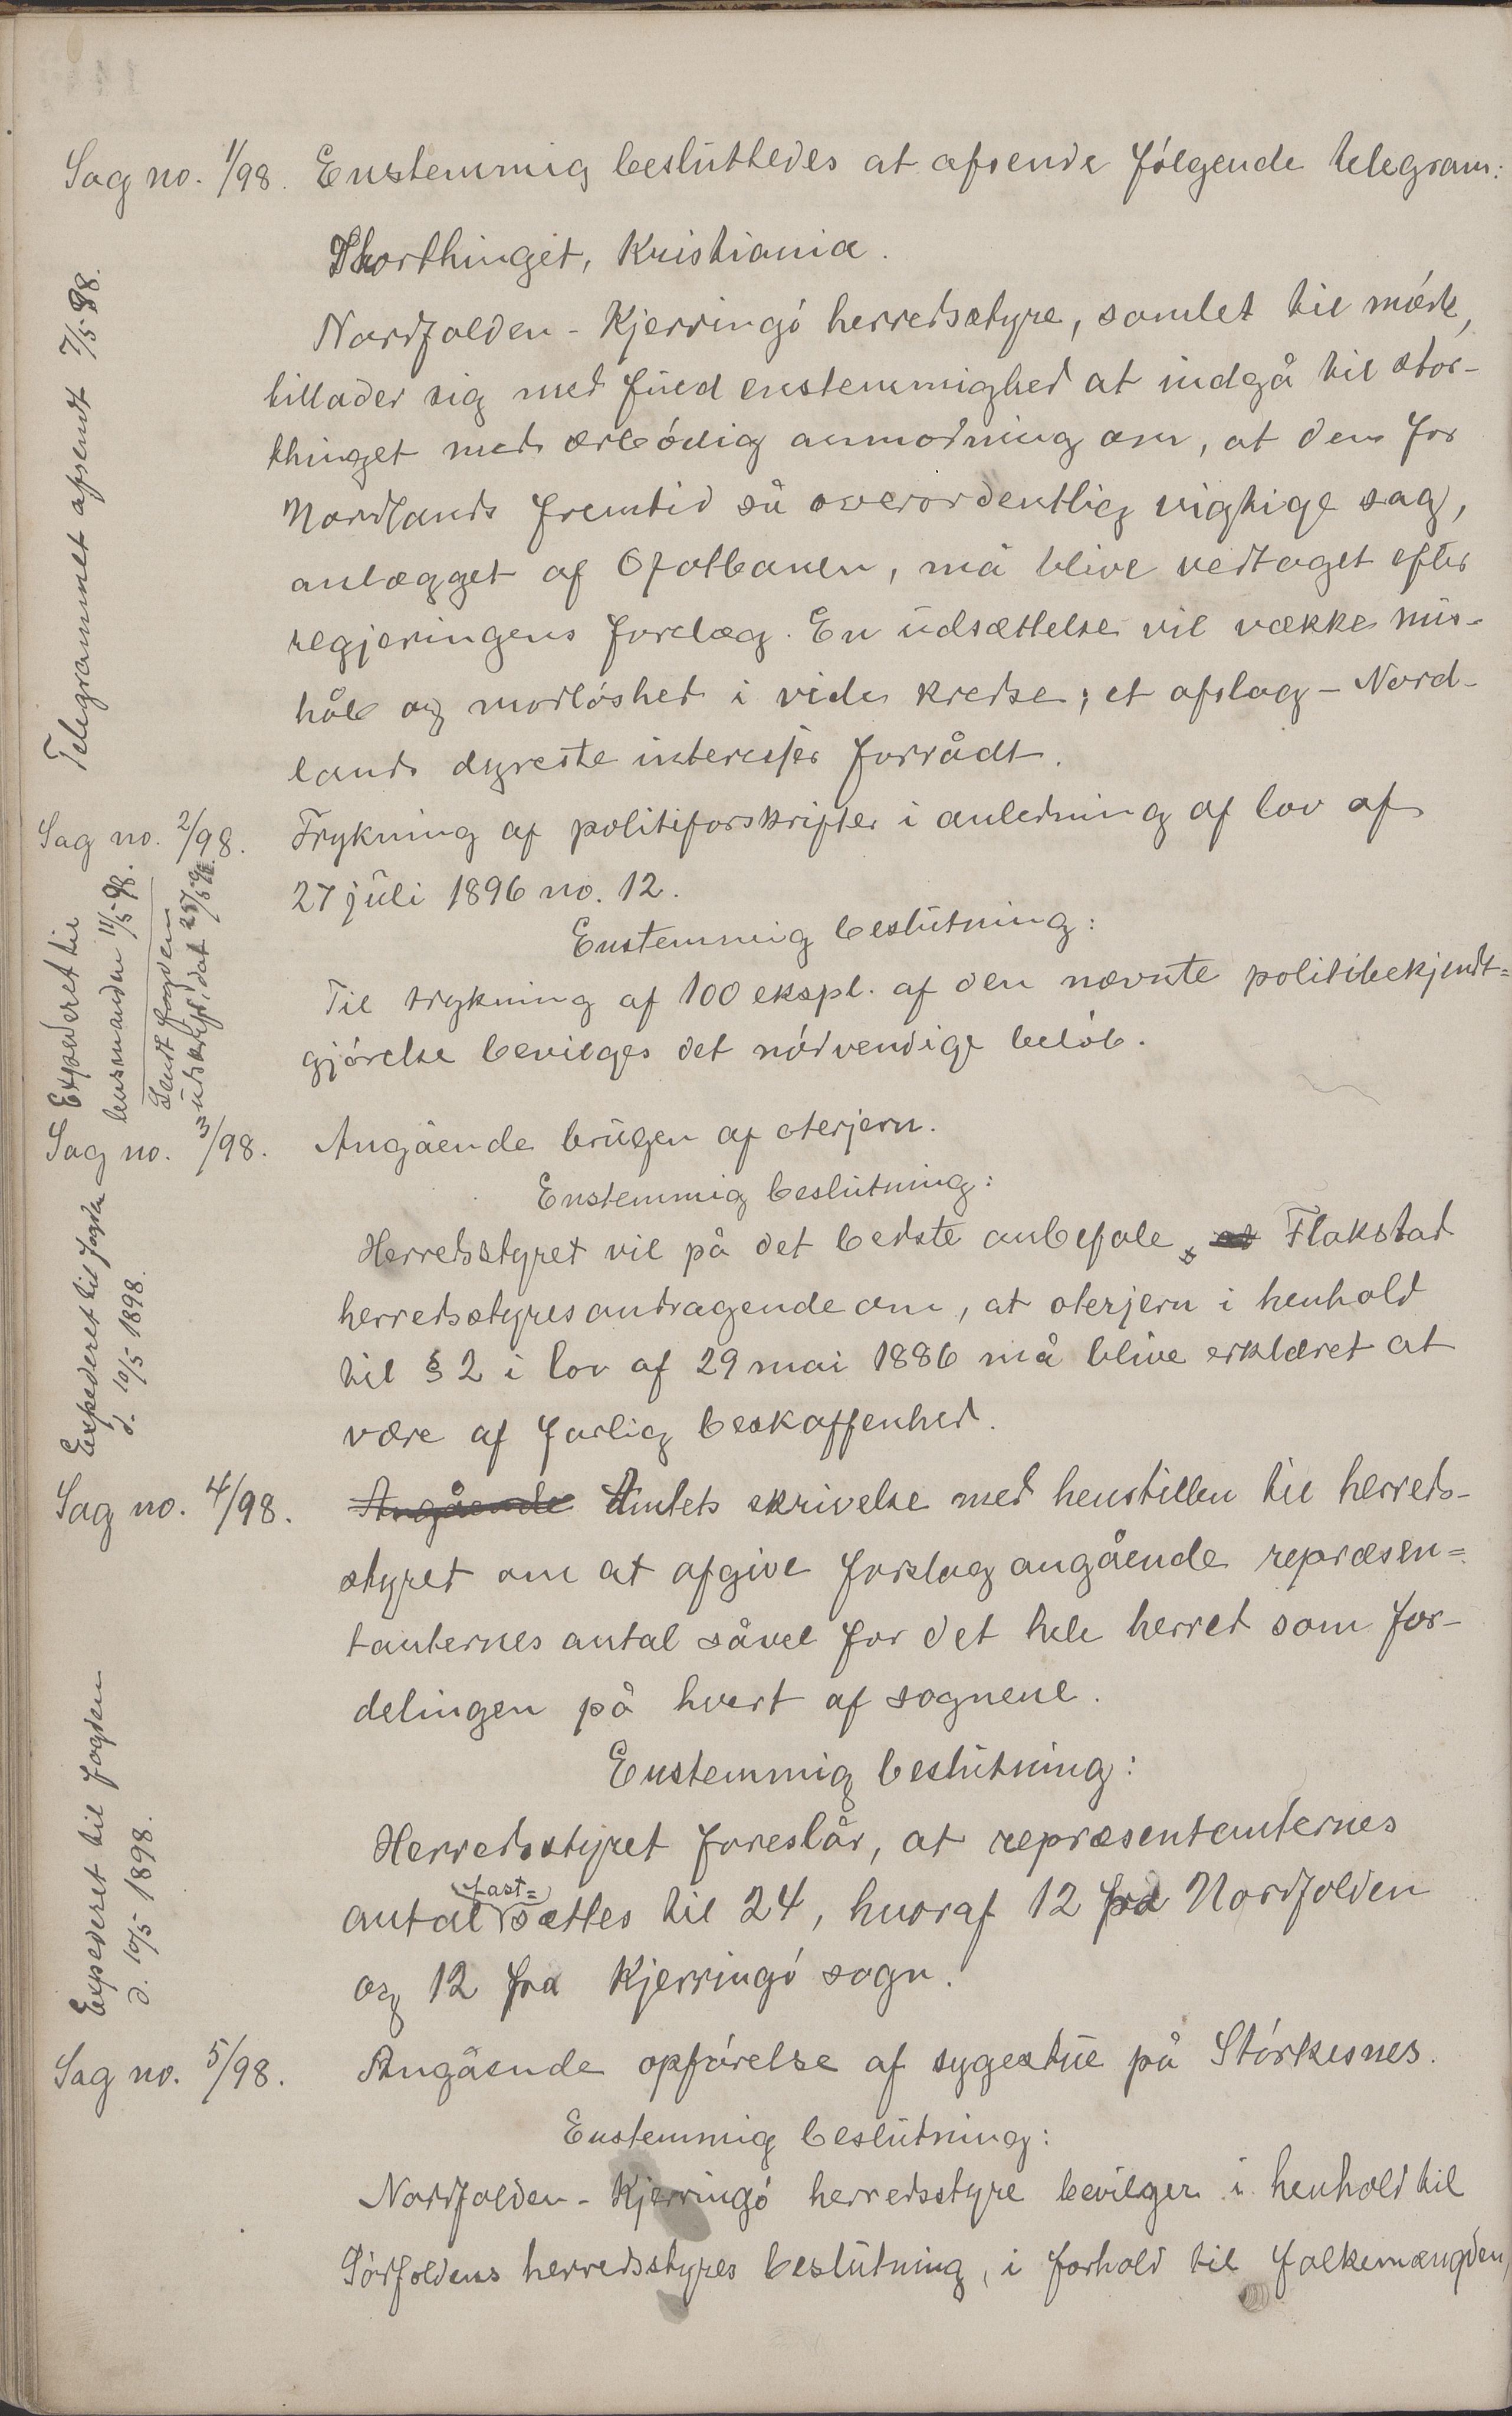 Sag no. 1/98. Enstemmig besluttedes at afsende følgende telegram:
Storthinget, Kristiania.
Nordfolden-Kjerringø herredsstyre, samlet til møde,
tillader sig med fuld enstemmighed at indgå til stor-
thinget med ærbødig anmodning om, at den for
Nordlands fremtid så overordentlig vigtige sag,
anlægget af Ofotbanen, må blive vedtaget efter
regjeringens forelæg. En udsættelse vil vække mis-
håb og modløshed i vide kredse; et afslag - Nord-
lands dyreste interesser forrådt.
Telegrammet afsendt 7/5 98.
Sag no. 2/98. Trykning af politiforskrifter i anledning af lov af
27 juli 1896 no. 12.
Enstemmig beslutning:
Til trykning af 100 ekspl. af den nævnte politibekjendt=
gjørelse bevilges det nødvendige beløb.
Expederet til
lensmanden 11/5 98.
Sendt fogden
udskrift, dat 25/5 98.
Sag no. 3/98. Angående brugen af oterjern.
Enstemmig beslutning:
Herredsstyret vil på det bedste anbefale at Flakstad
herredsstyres andragende om, at oterjern i henhold
til § 2 i lov af 29 mai 1886 må blive erklæret at
være af farlig beskaffenhed.
Expederet til fogden
d. 10/5 1898.
Sag no. 4/98. Angående Amtets skrivelse med henstillen til herreds-
styret om at afgive forslag angående repræsen=
tanternes antal såvel for det hele herred som for-
delingen på hvert af sognene.
Enstemmig beslutning:
Herredsstyret foreslår, at repræsentanternes
antal fast=sættes til 24, hvoraf 12 fra Nordfolden
og 12 fra Kjerringø sogn.
Expederet til fogden
d. 10/5 1898.
Sag no. 5/98. Angående opførelse af sygestue på Størkesnes.
Enstemmig beslutning:
Nordfolden-Kjerringø herredsstyre bevilger i henhold til
Sørfoldens herredsstyres beslutning, i forhold til folkemængden,